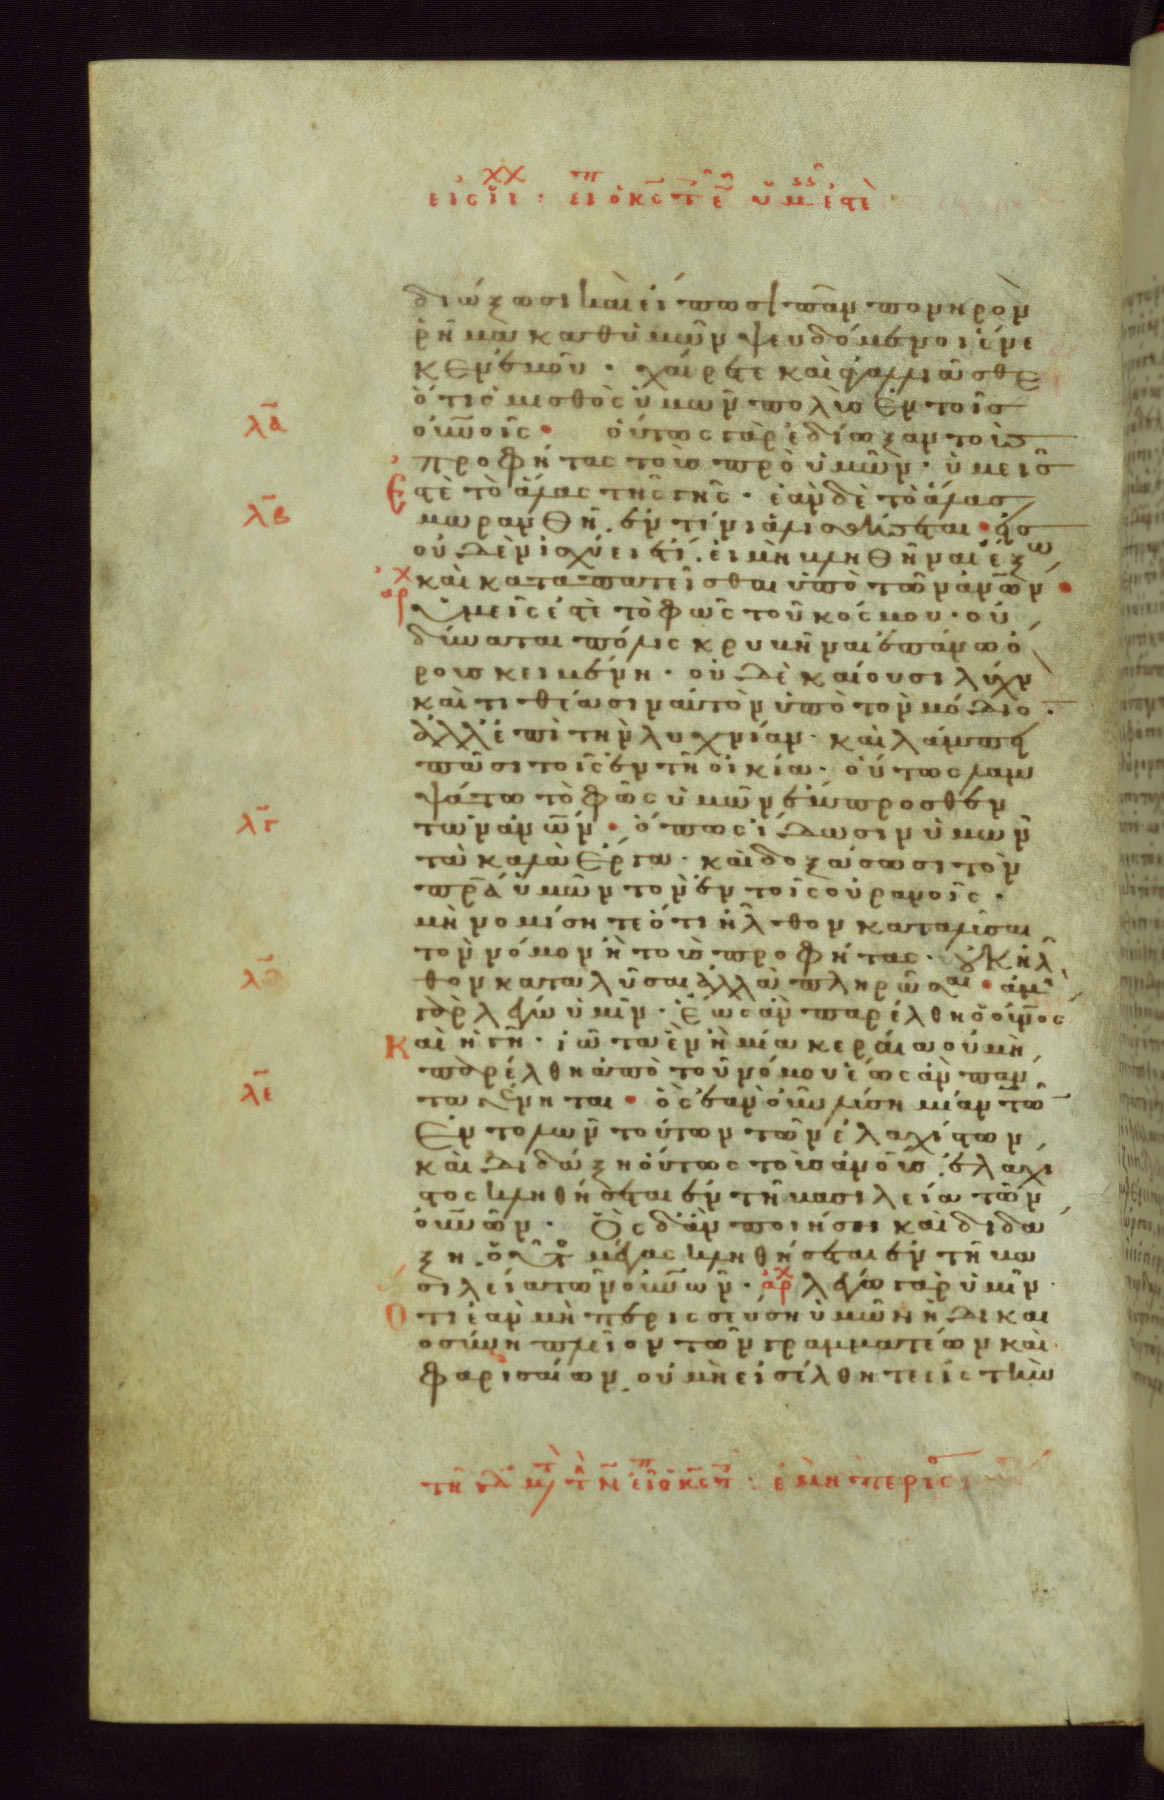 διώξωσι καὶ είπωσι πᾶν πονηρὸν
ρῆμα καθυμῶν ψευδόμενοι ένε
κεν εμοῦ · χαίρετε καὶ ἀγαλλιᾶσθε
ὁτι ὁ μισθὸς ὑμων πολὺσ ἐν τοῖσ
λα
οὐνοῖς · ούτως γαρ εδίωξαν τοὺσ
προφήτας τοὺσ πρὸ ὑμῶν · ὑμεισ
Εστὲ τὸ άλας τῆς γῆς · ἐὰν δὲ τὸ άλας
λβ
μωρανθῆ, ἐν τίνι ἁλισθήσεται · εἰσ
οὐδὲν ισχύει έτι, ει μὴ βληθῆναι έξω
καὶ καταπατεῖσθαι ὑπὸ τῶν ἀνων ·
αρχ
Υμεῖς ἐστὲ τὸ φῶς τοῦ κόσμου · οὐ
δύναται πόλις κρυβῆναι ἐπάνω ό
ρουσ κειμένη · οὐδὲ καίουσι λύχν
καὶ τιθέασιν αυτὸν ὑπὸ τὸν μόδιο ·
ἀλλ' ἐπὶ τὴν λυχνίαν · καὶ λάμπει
πᾶσι τοῖς ἐν τῆ οικία · ούτως λαμ
ψάτω τὸ φῶς ὑμῶν έμπροσθεν
λγ
τῶν ἀνων · ὁπως ίδωσιν ὑμων
τὰ καλὰ Εργα · καὶ δοξάσωσι τὸν
πρα ὑμῶν τὸν ἐν τοῖς οὐρανοῖς ·
μὴ νομίσητε ότι ῆλθον καταλῦσαι
τὸν νόμον ὴ τοὺσ προφήτας · οὐκ ῆλ
λδ
θον καταλῦσαι ἀλλὰ πληρῶσαι · ἀμὴ
γὰρ λέγω ὑμῖν · Εως ὰν παρέλθη ὁ οὐνος
Καὶ ἡ γῆ · ἰῶτα ὲν ὴ μία κεραία οὐ μὴ
παρέλθη ἀπὸ τοῦ νόμου έως ὰν παν
λε
τα γένηται · ὸς ἐὰν οὖν λύση μίαν τῶ
Εντολων τούτων τῶν ἐλαχίστων
καὶ διδάξη ούτως τοὺσ ἀνουσ, ἐλαχι
στος κληθήσεται ἐν τῆ βασιλεία τῶν
οὐνῶν · Ὸς δ' ὰν ποιήσει καὶ διδα
ξη, οὗτος μέγας κληθήσεται ἐν τῆ βα
σιλεία τῶν οὐνων · αρχ λέγω γὰρ ὑμῖν ·
Οτι ἐὰν μὴ περισσεύση ὑμῶν ἡ δικαι
οσύνη πλεῖον τῶν γραμματέων καὶ
φαρισαίων, οὐ μὴ εισέλθητε εις τὴν